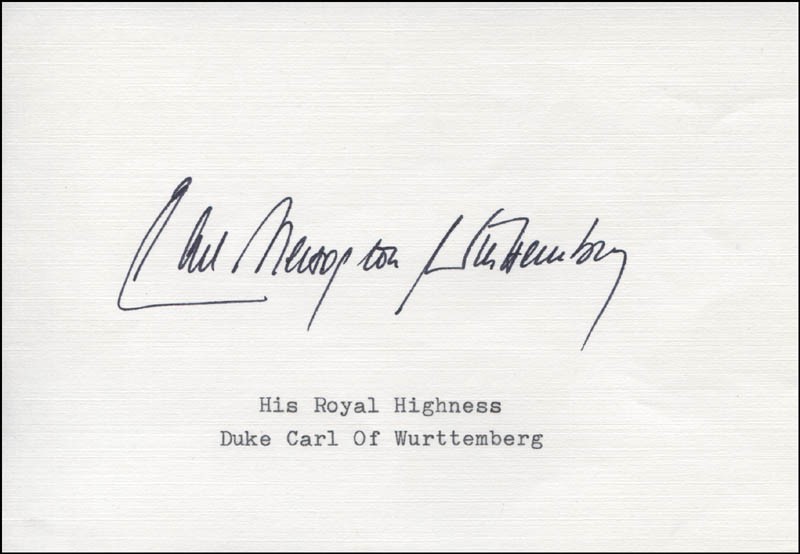 Carl Herzog von Württemberg
His Royal Highness
Duke Carl Of Wurttemberg